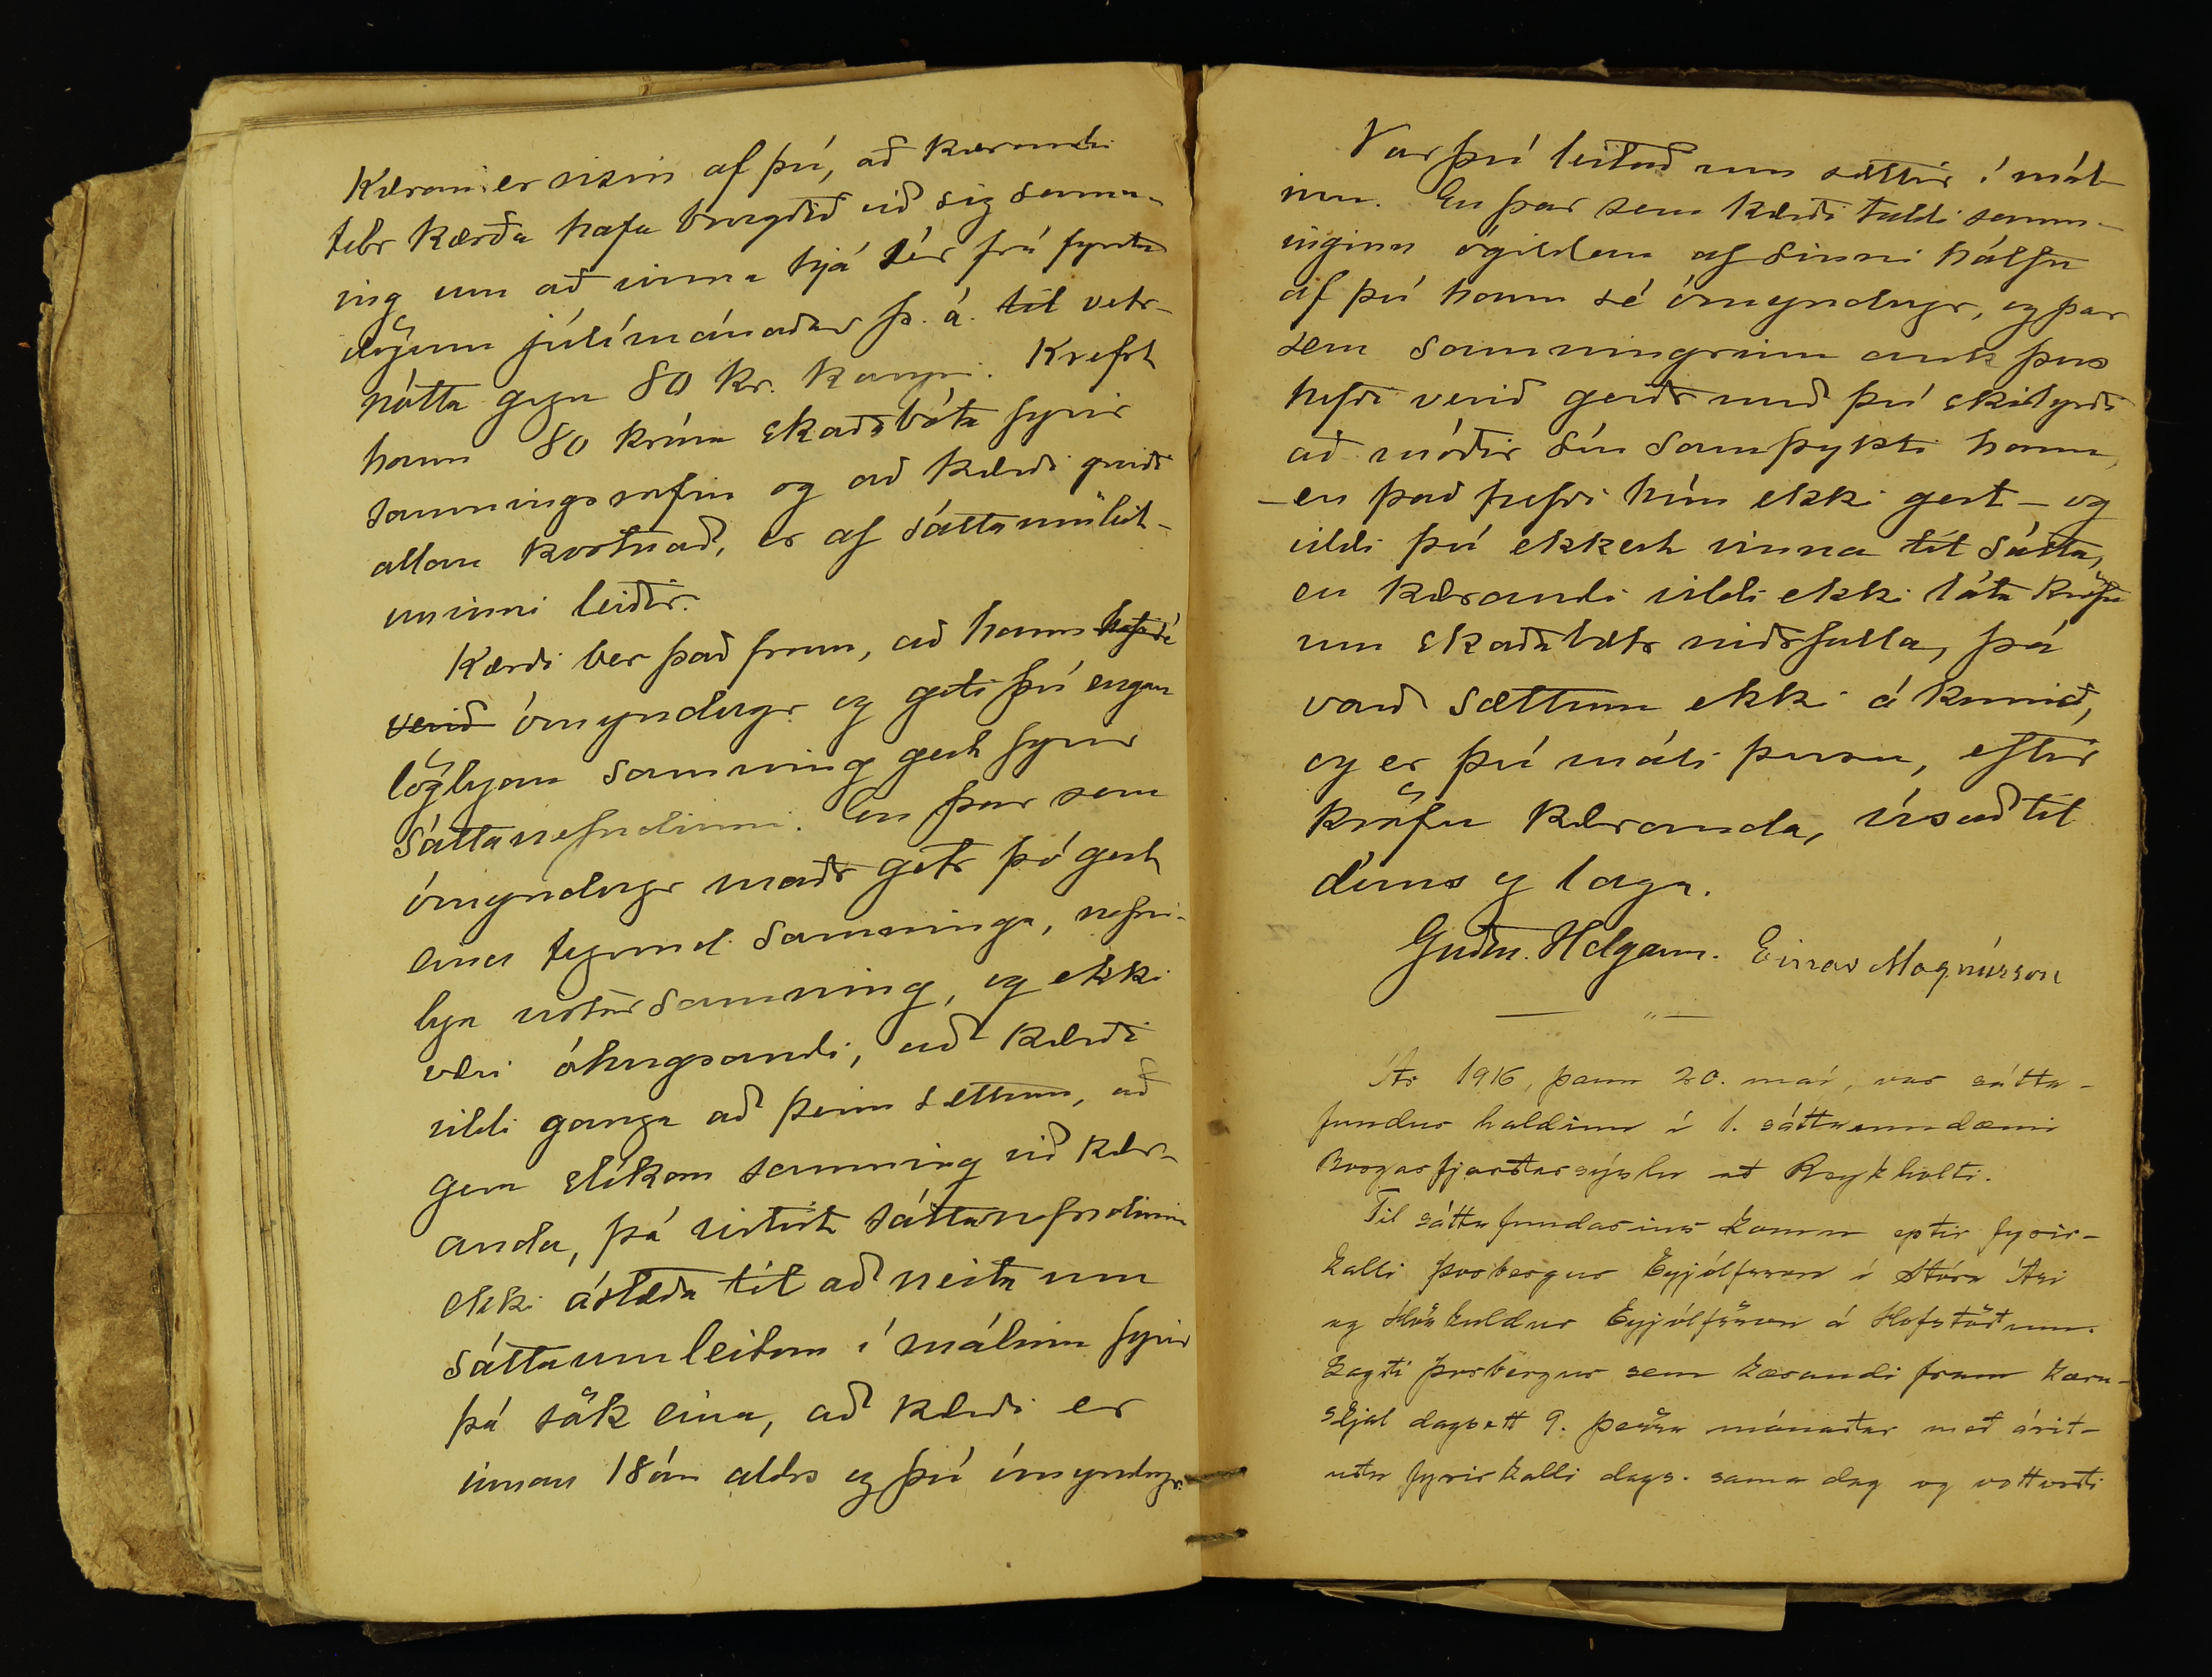 Kæran er risin af því, að kærandi
telr kærða hafa brugðið við sig samn-
ing um að vinna hjá sér frá fyrstu
dögum júlímánaðar þ. á. til vetr-
nótta gegn 80 kr. kaupi. Krefst
hann 80 króna skaðabóta fyrir
samningsrofin og að kærði greiði
allan kostnað, er af sáttaumleit-
uninni leiðir.
Kærði ber það fram, að hann hafi
verið ómyndugr og geti því engan
löglegan samning gert fyrir
sáttanefndinni. En þar sem
ómyndugr maðr getr þó gert
eina tegund samninga, nefni-
lega vistarsamning, og ekki
væri óhugsandi, að kærði
vildi ganga að þeim sættum, að
gera slíkan samning við kær-
anda, þá virtist sáttanefndinni
ekki ástæða til að neita um
sáttaumleitan í málinu fyrir
þá sök eina, að kærði er
innan 18 ára aldrs og því ómyndugr.
Var því leitað um sættir í mál-
inu. En þar sem kærði taldi samn-
inginn ógildan af sinni hálfu
af því hann sé ómyndugr, og þar
sem samningrinn auk þess
hefði verið gerðr með því skilyrði
að móðir sín samþykti hann,
– en það hefði hún ekki gert – og
vildi því ekkert vinna til sátta,
en kærandi vildi ekki láta kröfu
um skaðabætr niðrfalla, þá
varð sættum ekki á komið,
og er því máli þessu, eftir
kröfu kæranda, vísað til
dóms og laga.
Guðm. Helgason. Einar Magnússon
Ár 1916, þann 20. maí, var sátta-
fundur haldinn í 1. sáttaumdæmi
Borgarfjarðarsýslu að Reykholti.
Til sáttafundarins komu eptir fyrir-
kalli Þorbergur Eyjólfsson í Stóra Ási
og Höskuldur Eyjólfsson á Hofstöðum.
Lagði Þorbergur sem kærandi fram kæru-
skjal dagsett 9. þessa mánaðar með árit-
uðu fyrirkalli dags. sama dag og vottorði